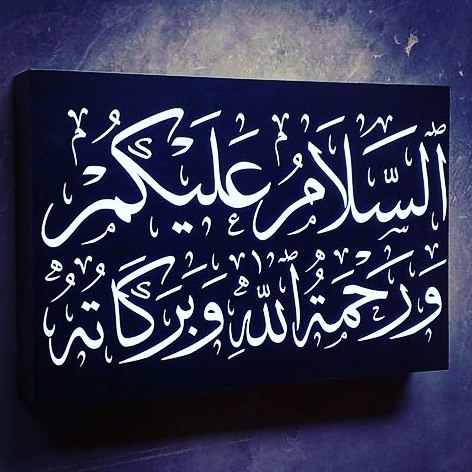 اَلسَّلَامُ عَلَيْكُمْ
وَرَحْمَةُ اللّٰهِ وَبَرَكَاتُهُ